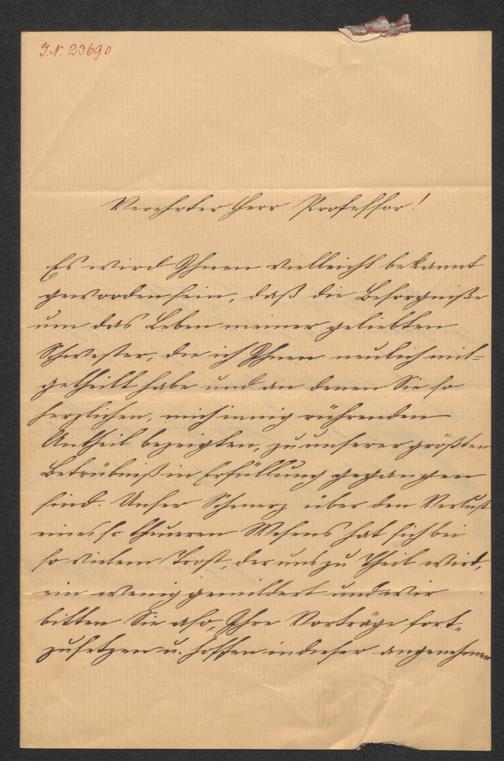 J.N. 23690
Verehrter Herr Professor!
Es wird Ihnen vielleicht bekannt
geworden sein, daß die Besorgniße
um das Leben meiner geliebten
Schwester, die ich Ihnen neulich mit-
getheilt habe und an denen Sie so
herzlichen, mich innig rührenden
Antheil bezeigten, zu unserer größten
Betrübniß in Erfüllung gegangen
sind. Unser Schmerz über den Verlust
eines so theueren Wesens hat sich bei
so vielem Trost, der uns zu Theil wird,
ein wenig gemildert und wir
bitten Sie also, Ihre Vorträge fort-
zusetzen u. hoffen in dieser angenehmen